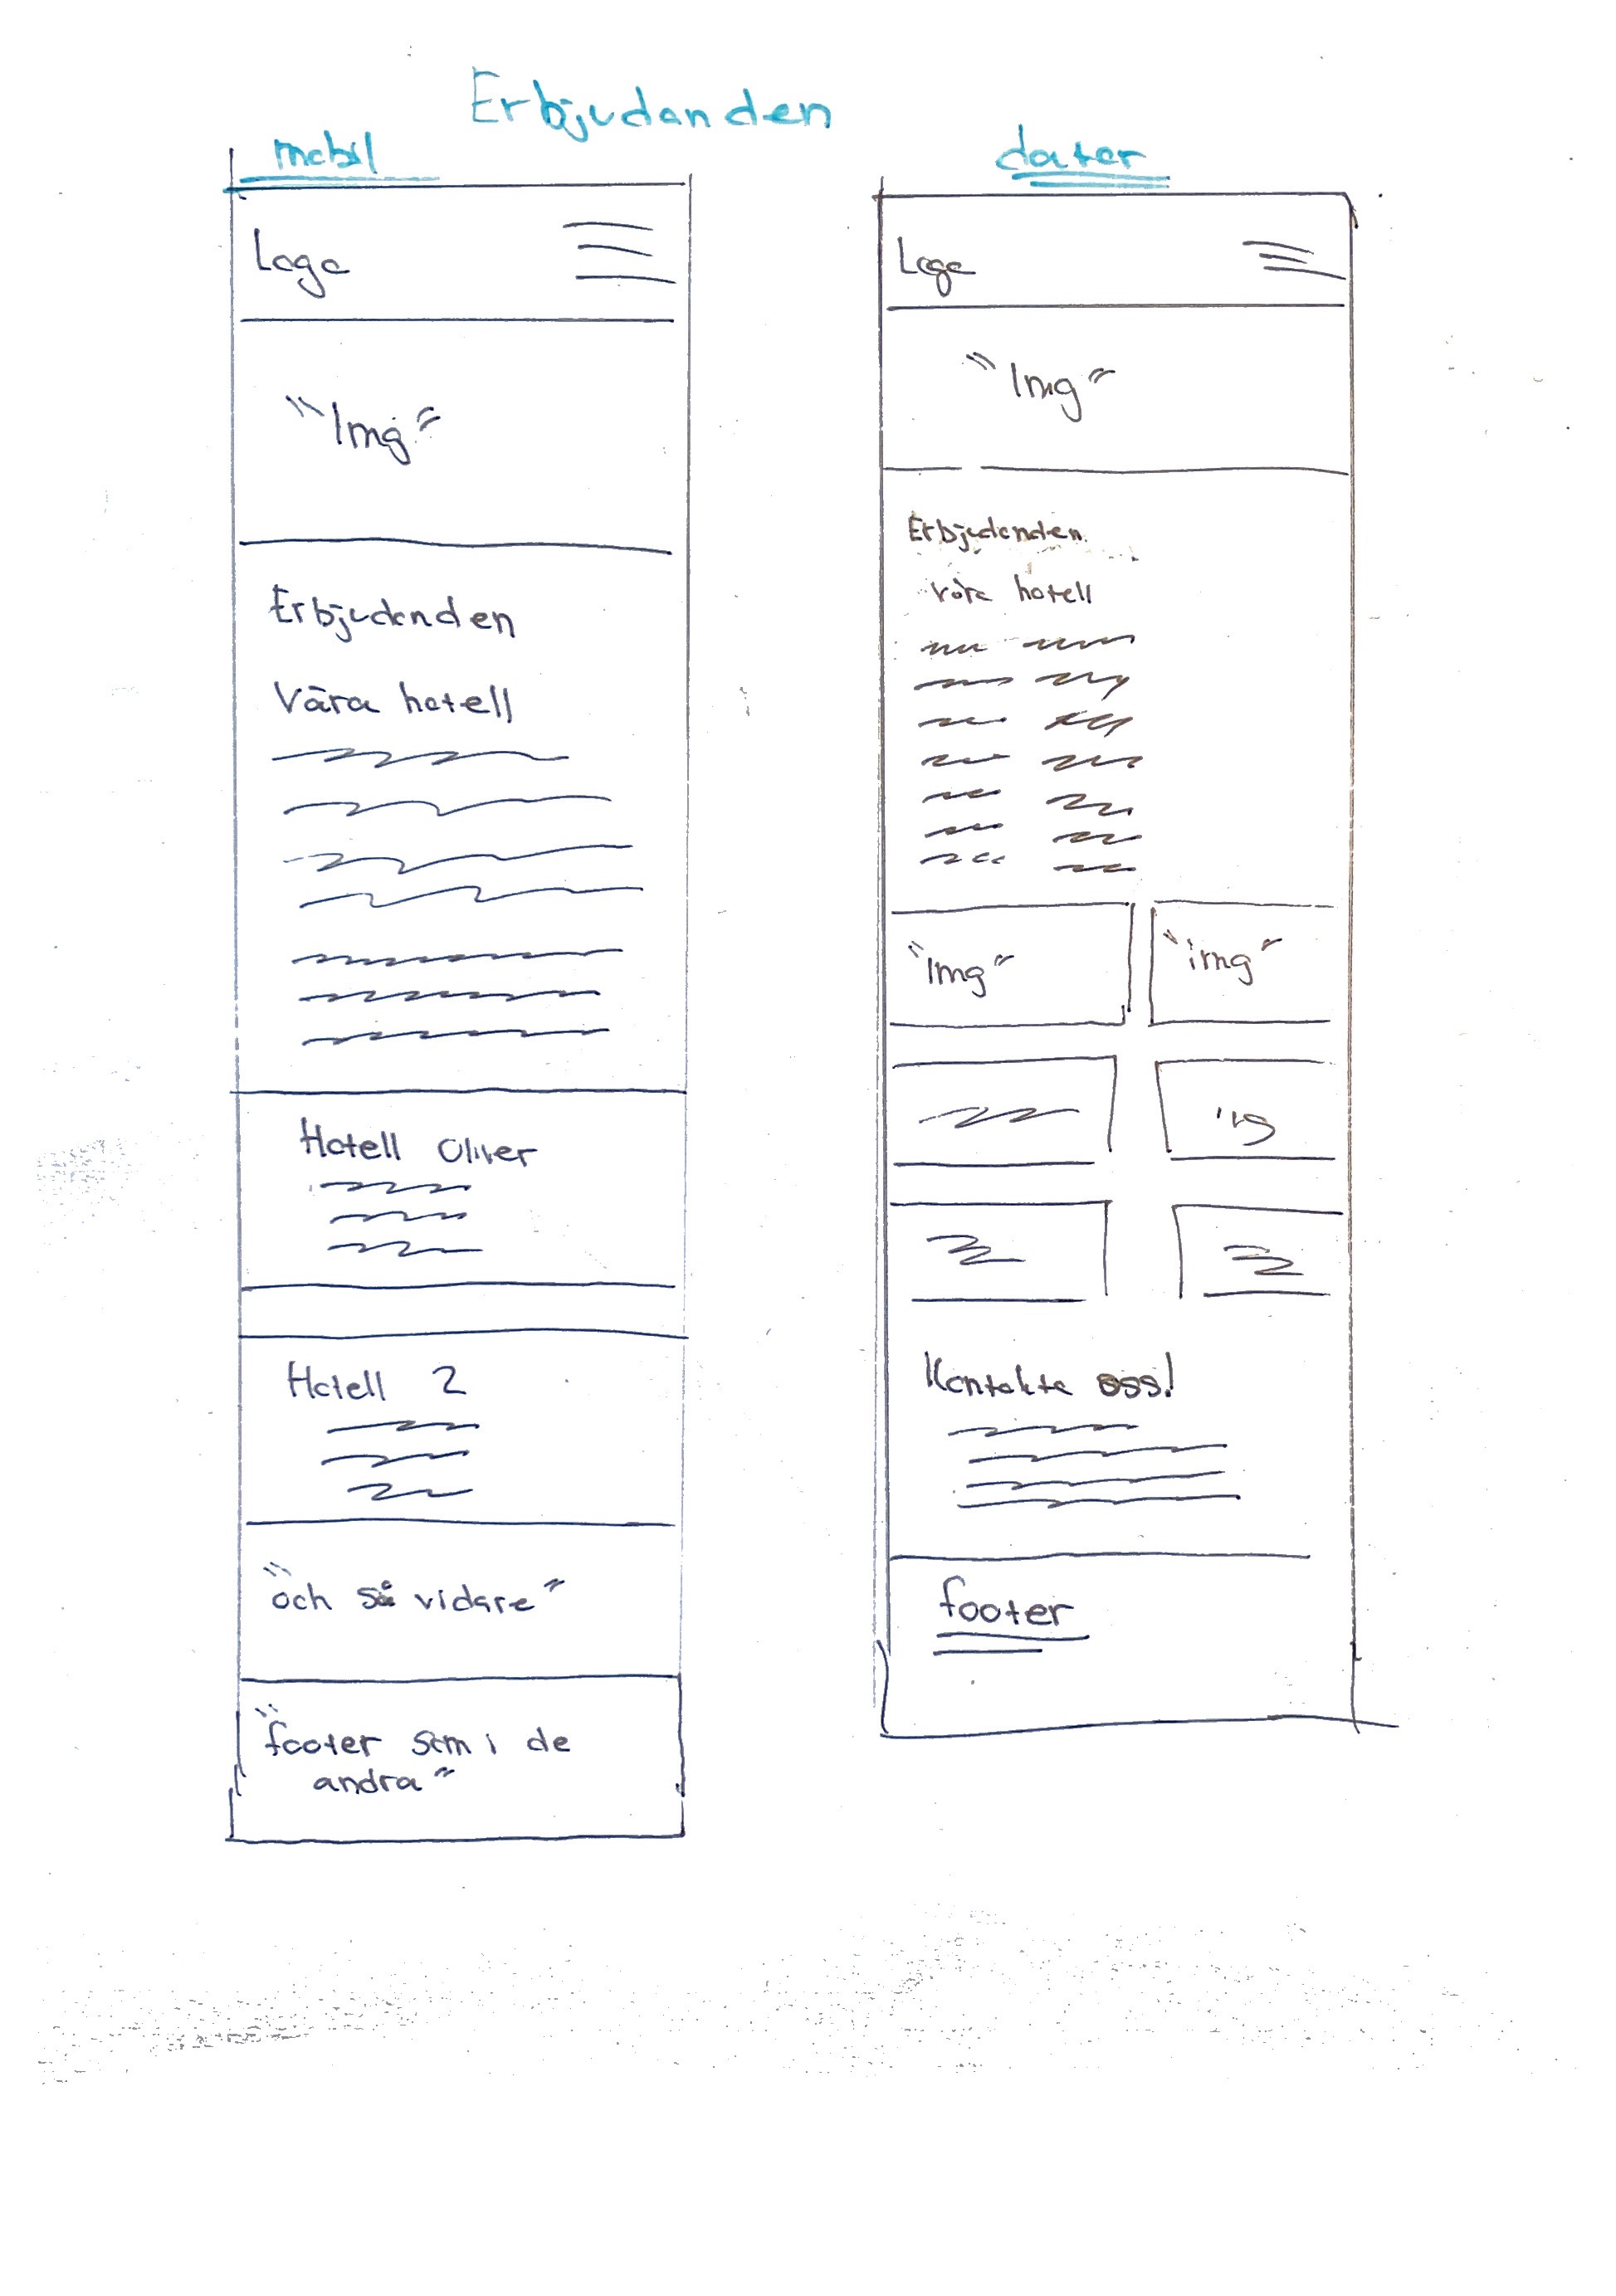 Erbjudanden
mobil
Logo
"Img"
Erbjudanden
Våra hotell
Hotell Oliver
Hotell 2
"och så vidare"
"footer som i de
andra"
dator
Logo
"Img"
Erbjudanden
våra hotell
"Img" "img"
Kontakta oss!
footer